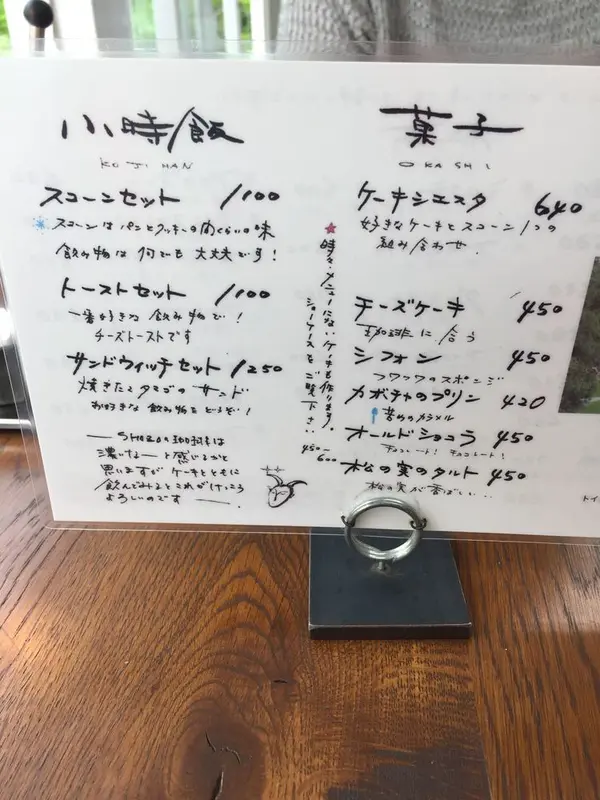 小時飯
KOJIHAN
スコーンセット 1100
スコーンはパンとクッキーの間くらいの味
飲み物は何でも大丈夫です!
トーストセット 1100
一番好きな飲み物で!
チーズトーストです
サンドウィッチセット 1250
焼きたてタマゴのサンド
お好きな飲み物をどうぞ!
SHOZOの珈琲は
濃いなーと感じるかと
思いますがケーキとともに
飲んでみるとこれがけっこう
よろしいのです
★時々、メニューにないケーキも作ります。
ショーケースをご覧下さい。
450~
600
菓子
OKASHI
ケーキシエスタ 640
好きなケーキとスコーン1つの
組み合わせ.
チーズケーキ 450
珈琲に合う
シフォン 450
フワフワのスポンジ
カボチャのプリン 420
昔ながらのカラメル
オールドショコラ 450
チョコレート!チョコレート!
松の実のタルト 450
松の実が香ばしい..